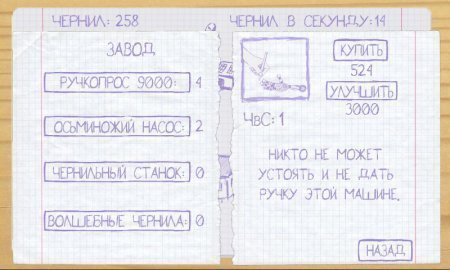 ЧЕРНИЛ: 258
ЧЕРНИЛ В СЕКУНДУ: 14
ЗАВОД
РУЧКОПРОС 9000: 4
ОСЬМИНОЖИЙ НАСОС: 2
ЧЕРНИЛЬНЫЙ СТАНОК: 0
ВОЛШЕБНЫЕ ЧЕРНИЛА: 0
КУПИТЬ
524
УЛУЧШИТЬ
3000
ЧВС: 1
НИКТО НЕ МОЖЕТ
УСТОЯТЬ И НЕ ДАТЬ
РУЧКУ ЭТОЙ МАШИНЕ.
НАЗАД